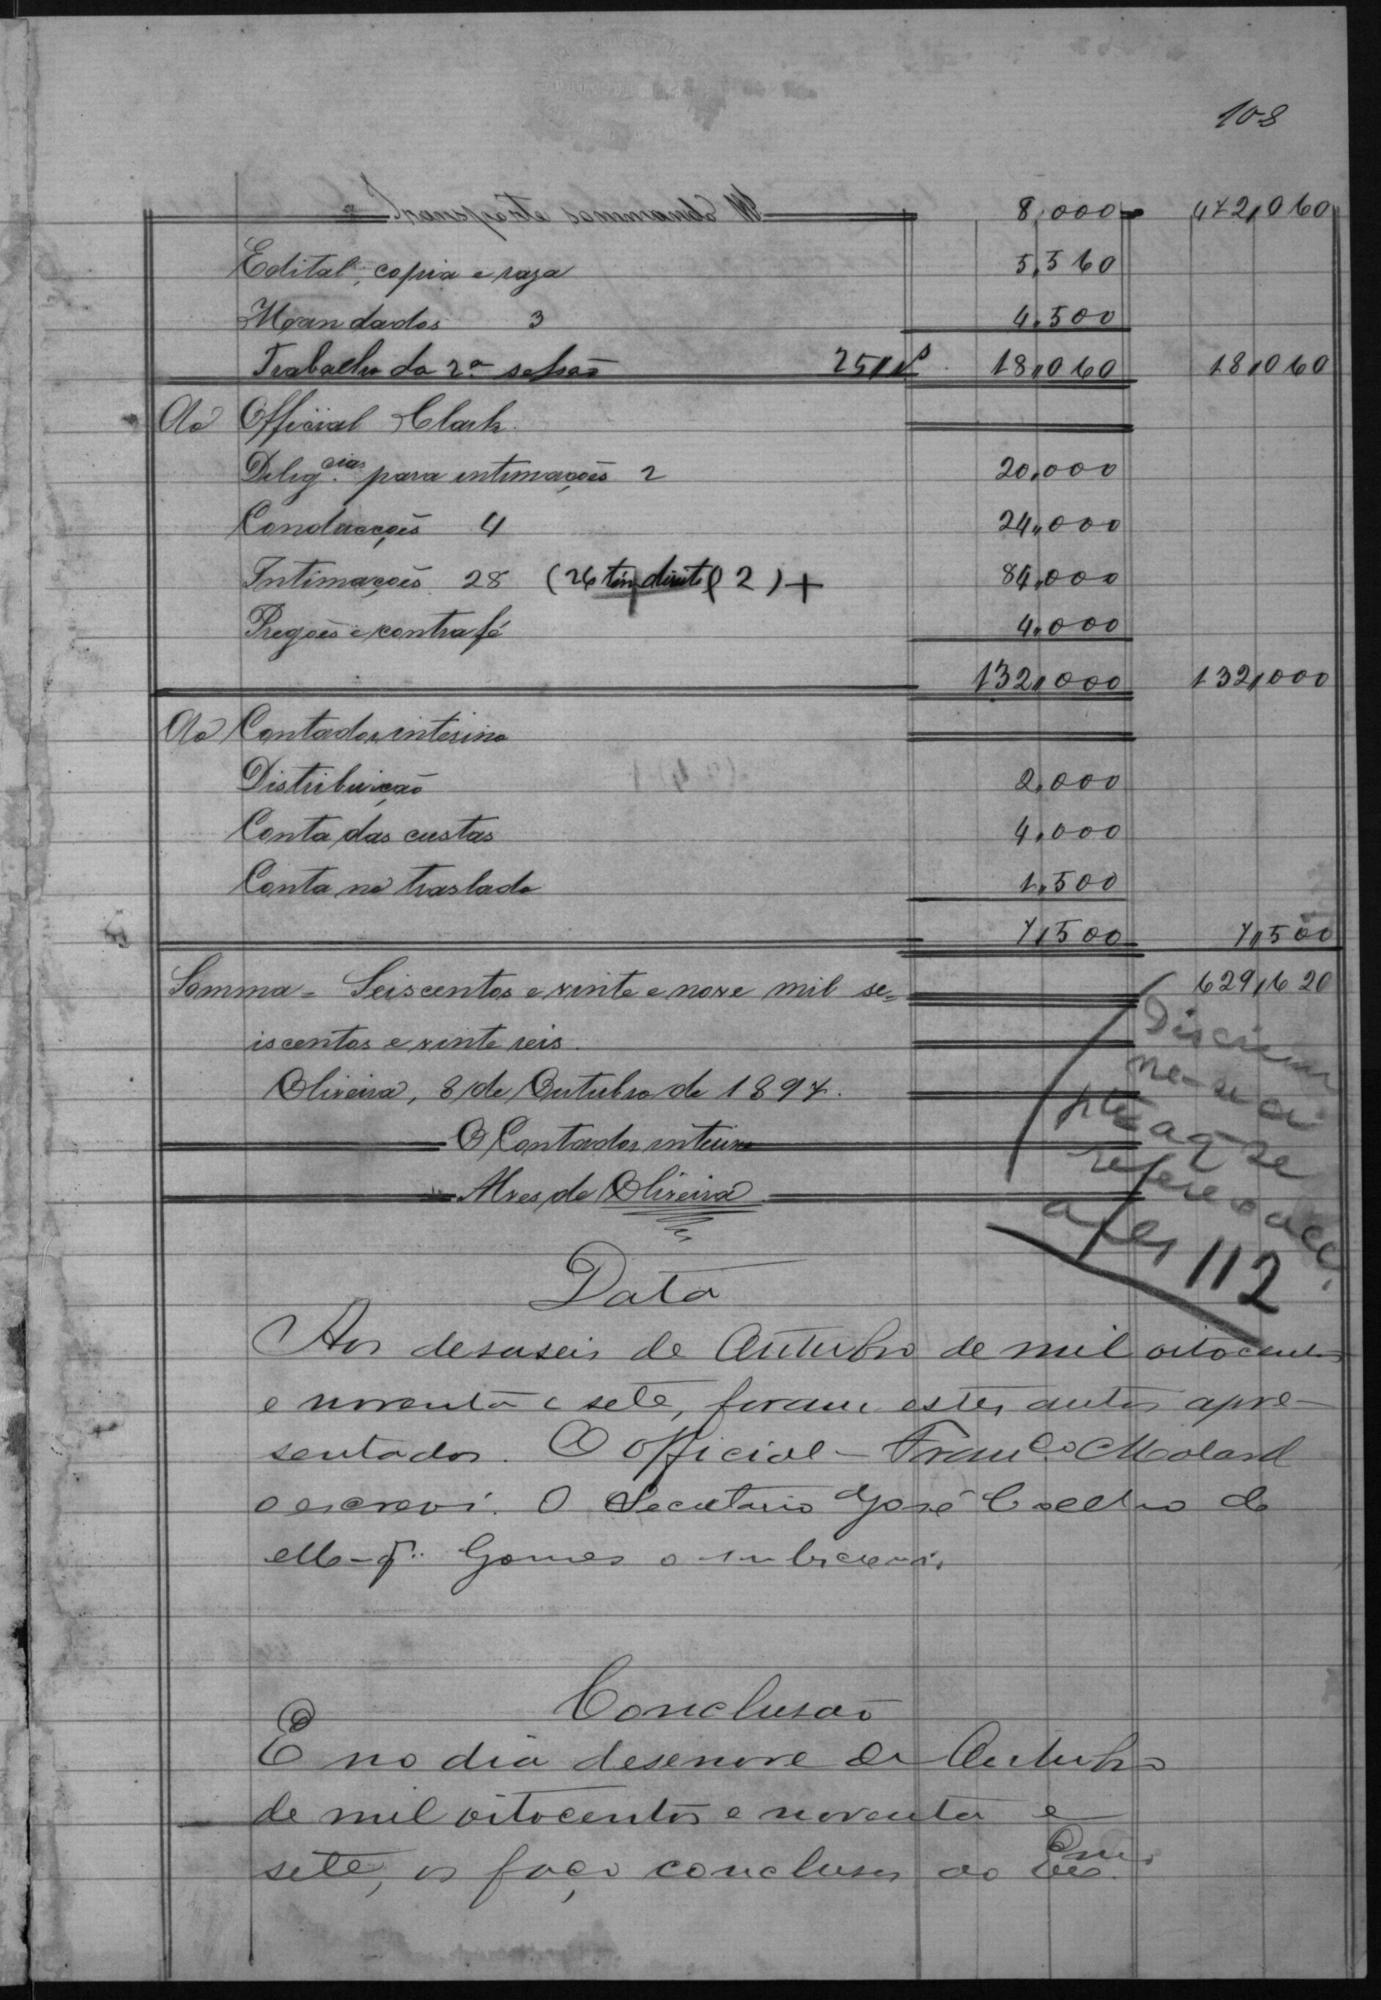 108
8,000 472,060
Edital, copia e raza 5,560
Mandados 3 4,500
Trabalho da 2ª sessão 18,060 18,060
Ao Official Clark.
Dilig.cias para intimações 2 20,000
Conducções 4 24,000
Intimações 28 (26 2) + 84,000
Pregões e contra fé 4,000
132,000 132,000
Ao Contador interino
Distribuição 2,000
Conta das custas 4,000
Conta no traslado 1,500
7,500 7,500
Somma = Seiscentos e vinte e nove mil se= 629,620
iscentos e vinte reis.
Oliveira, 8 de Outubro de 1897.
O Contador interino
Alves de Oliveira
refere o acc.
a fls 112
Data
Aos desaseis de Outubro de mil oitocentos
e noventa e sete, foram estes autos apre-
sentados O official – Fran.co Moland
o escrevi. O Secretario José Coelho de
Gomes o subscrevi.
Conclusão
E no dia desenove de Outubro
de mil oitocentos e noventa e
sete, os faço conclusos ao